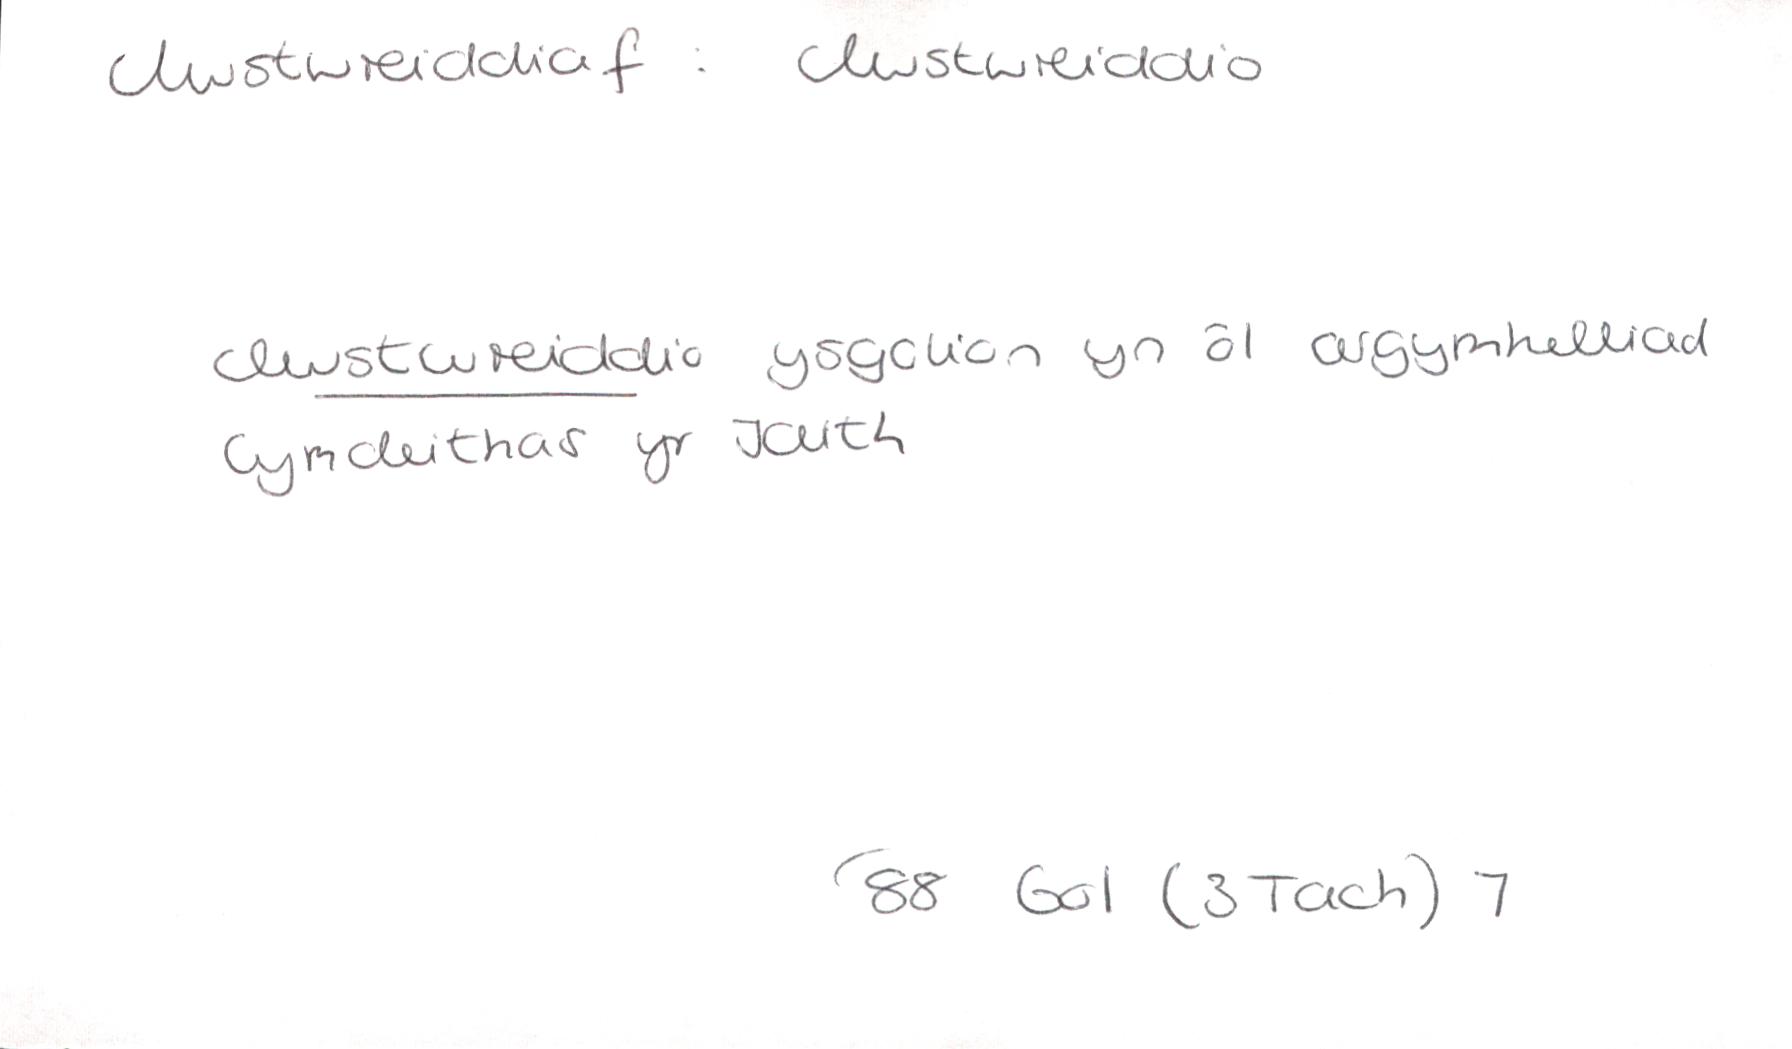 clwstwreiddiaf : clwstwreiddio
clwstwreiddio ysgolion yn ôl argymhelliad
Cymdeithas yr Iaith
88 Gol (3 Tach) 7